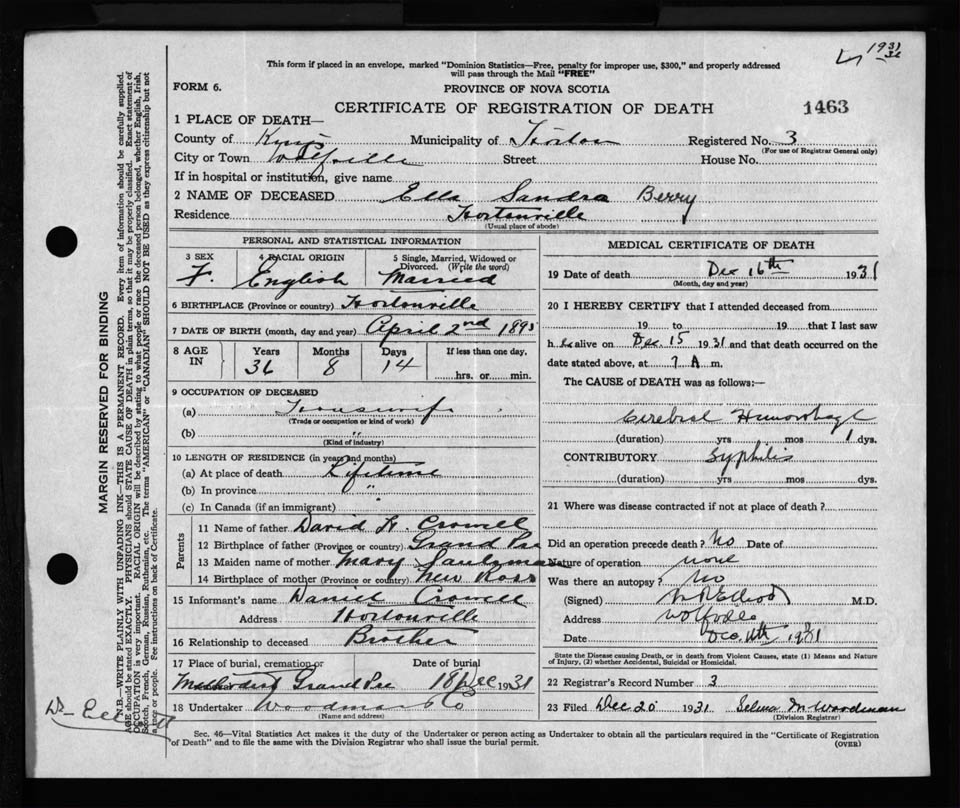 1931
32
This form if placed in an envelope, marked "Dominion Statistics—Free, penalty for improper use, $300," and properly addressed
will pass through the Mail "FREE"
FORM 6.
PROVINCE OF NOVA SCOTIA
CERTIFICATE OF REGISTRATION OF DEATH
1463
1 PLACE OF DEATH—
County of Kings Municipality of Horton Registered No. 3
(For use of Registrar General only)
City or Town Wolfville Street House No.
If in hospital or institution, give name
2 NAME OF DECEASED Ella Sandra Berry
Residence Hortonville
(Usual place of abode)
PERSONAL AND STATISTICAL INFORMATION
3 SEX 4 RACIAL ORIGIN 5 Single, Married, Widowed or
Divorced. (Write the word)
F. English Married
6 BIRTHPLACE (Province or country) Hortonville
7 DATE OF BIRTH (month, day and year) April 2nd 1895
8 AGE IN Years Months Days If less than one day,
36 8 14 hrs. or min.
9 OCCUPATION OF DECEASED
(a) Housewife
(Trade or occupation or kind of work)
(b) "
(Kind of industry)
10 LENGTH OF RESIDENCE (in years and months)
(a) At place of death Lifetime
(b) In province "
(c) In Canada (if an immigrant)
Parents
11 Name of father David H. Crowell
12 Birthplace of father (Province or country) Grand Pre
13 Maiden name of mother Mary
14 Birthplace of mother (Province or country) New Ross
15 Informant's name Daniel Crowell
Address Hortonville
16 Relationship to deceased Brother
17 Place of burial, cremation or Date of burial
Methodist Grand Pre 18 Dec 1931
18 Undertaker Woodman & Co
(Name and address)
MEDICAL CERTIFICATE OF DEATH
19 Date of death Dec 16th 1931
(Month, day and year)
20 I HEREBY CERTIFY that I attended deceased from
19 to 19 that I last saw
h er alive on Dec. 15 1931 and that death occurred on the
date stated above, at 7 A m.
The CAUSE of DEATH was as follows:—
Cerebral Hemorrhage
(duration) yrs mos 1 dys.
CONTRIBUTORY Syphilis
(duration) yrs mos dys.
21 Where was disease contracted if not at place of death?
Did an operation precede death? No Date of
Nature of operation none
Was there an autopsy? No
(Signed) M.D.
Address Wolfville
Date Dec 1931
State the Disease causing Death, or in death from Violent Causes, state (1) Means and Nature
of Injury, (2) whether Accidental, Suicidal or Homicidal.
22 Registrar's Record Number 3
23 Filed Dec 20 1931 Selma M Woodman
(Division Registrar)
Sec. 46—Vital Statistics Act makes it the duty of the Undertaker or person acting as Undertaker to obtain all the particulars required in the "Certificate of Registration
of Death" and to file the same with the Division Registrar who shall issue the burial permit.
(OVER)
MARGIN RESERVED FOR BINDING
N.B.—WRITE PLAINLY WITH UNFADING INK—THIS IS A PERMANENT RECORD. Every item of information should be carefully supplied.
AGE should be stated EXACTLY. PHYSICIANS should STATE CAUSE OF DEATH in plain terms, so that it may be properly classified. Exact statement of
OCCUPATION is very important. RACIAL ORIGIN will be described by stating to what people or race the deceased person belonged, whether English, Irish,
Scotch, French, German, Russian, Ruthenian, etc. The terms "AMERICAN" or "CANADIAN" SHOULD NOT BE USED as they express citizenship but not
a race or people. See instructions on back of Certificate.